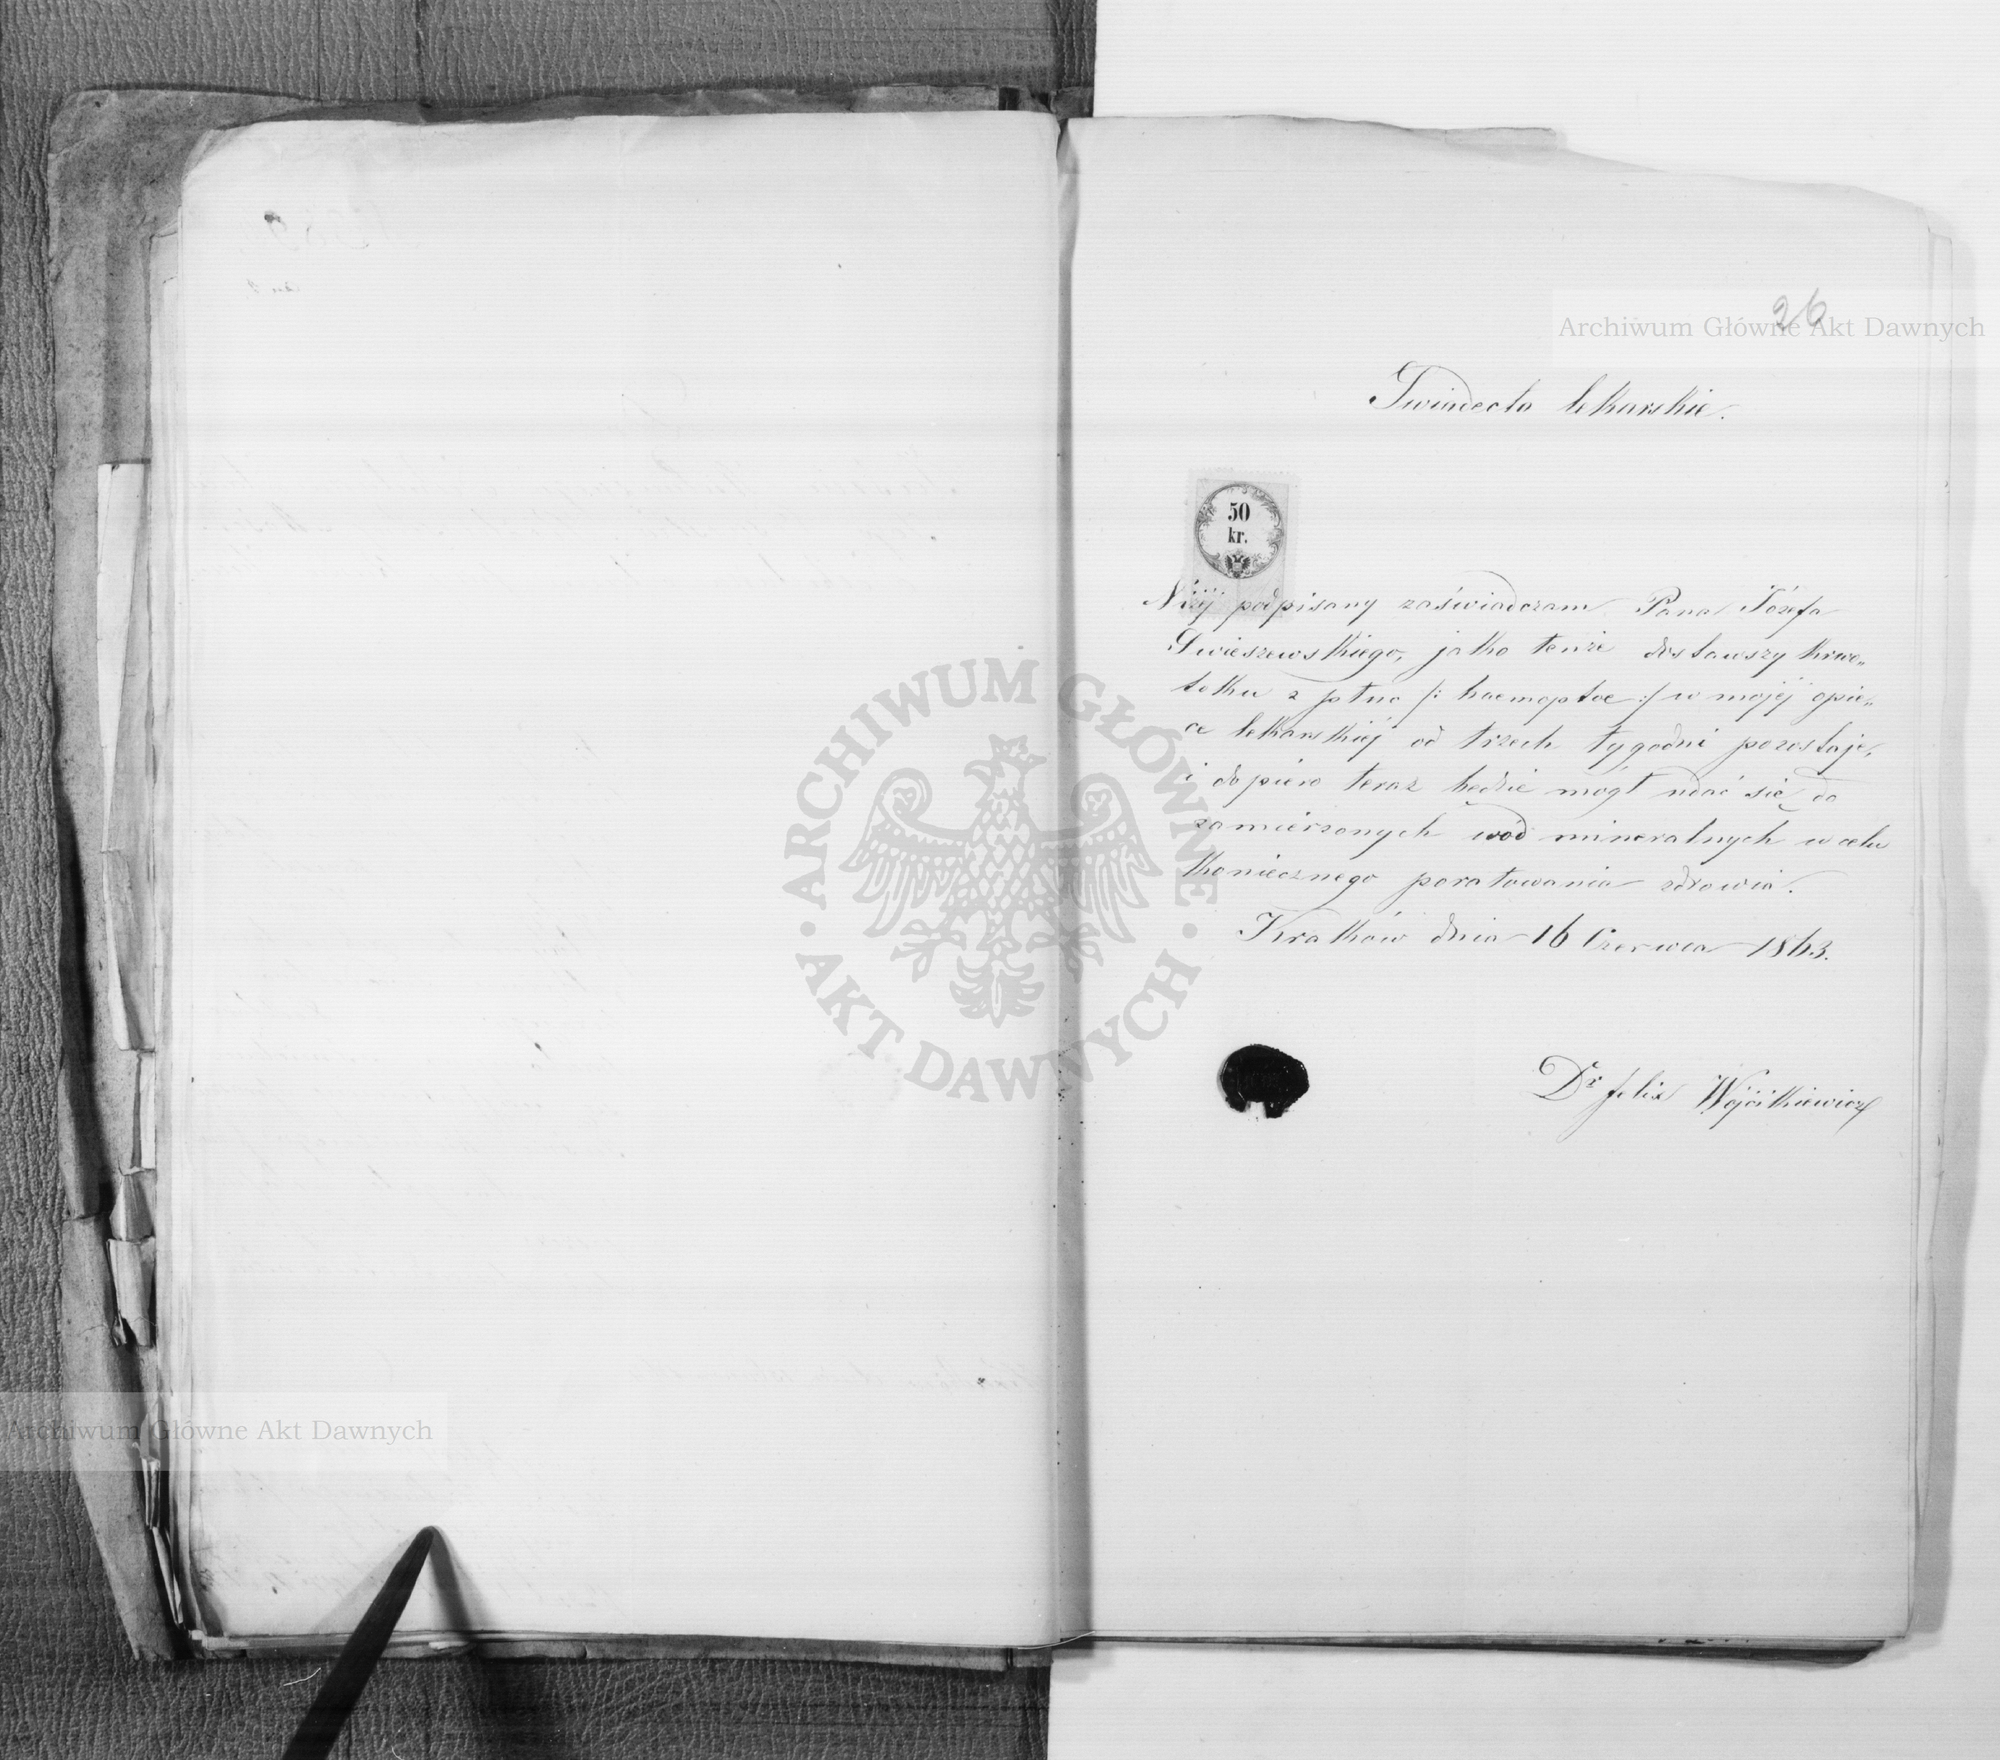 26
Archiwum Główne Akt Dawnych
Świadectwo lekarskie.
50
kr.
Niżéj podpisany zaświadczam Pana Józefa
Swieszewskiego, jako tenże dostawszy krwo„
toku z płuc /: haemoptoe :/ w mojéj opie„
ce lekarskiéj od trzech tygodni pozostaje,
i dopiero teraz będzie mógł udać się do
zamierzonych wód mineralnych w celu
koniecznego poratowania zdrowia.
Kraków dnia 16 Czerwca 1863.
Dr Felix Wójcikiewicz
ARCHIWUM GŁÓWNE AKT DAWNYCH
Archiwum Główne Akt Dawnych